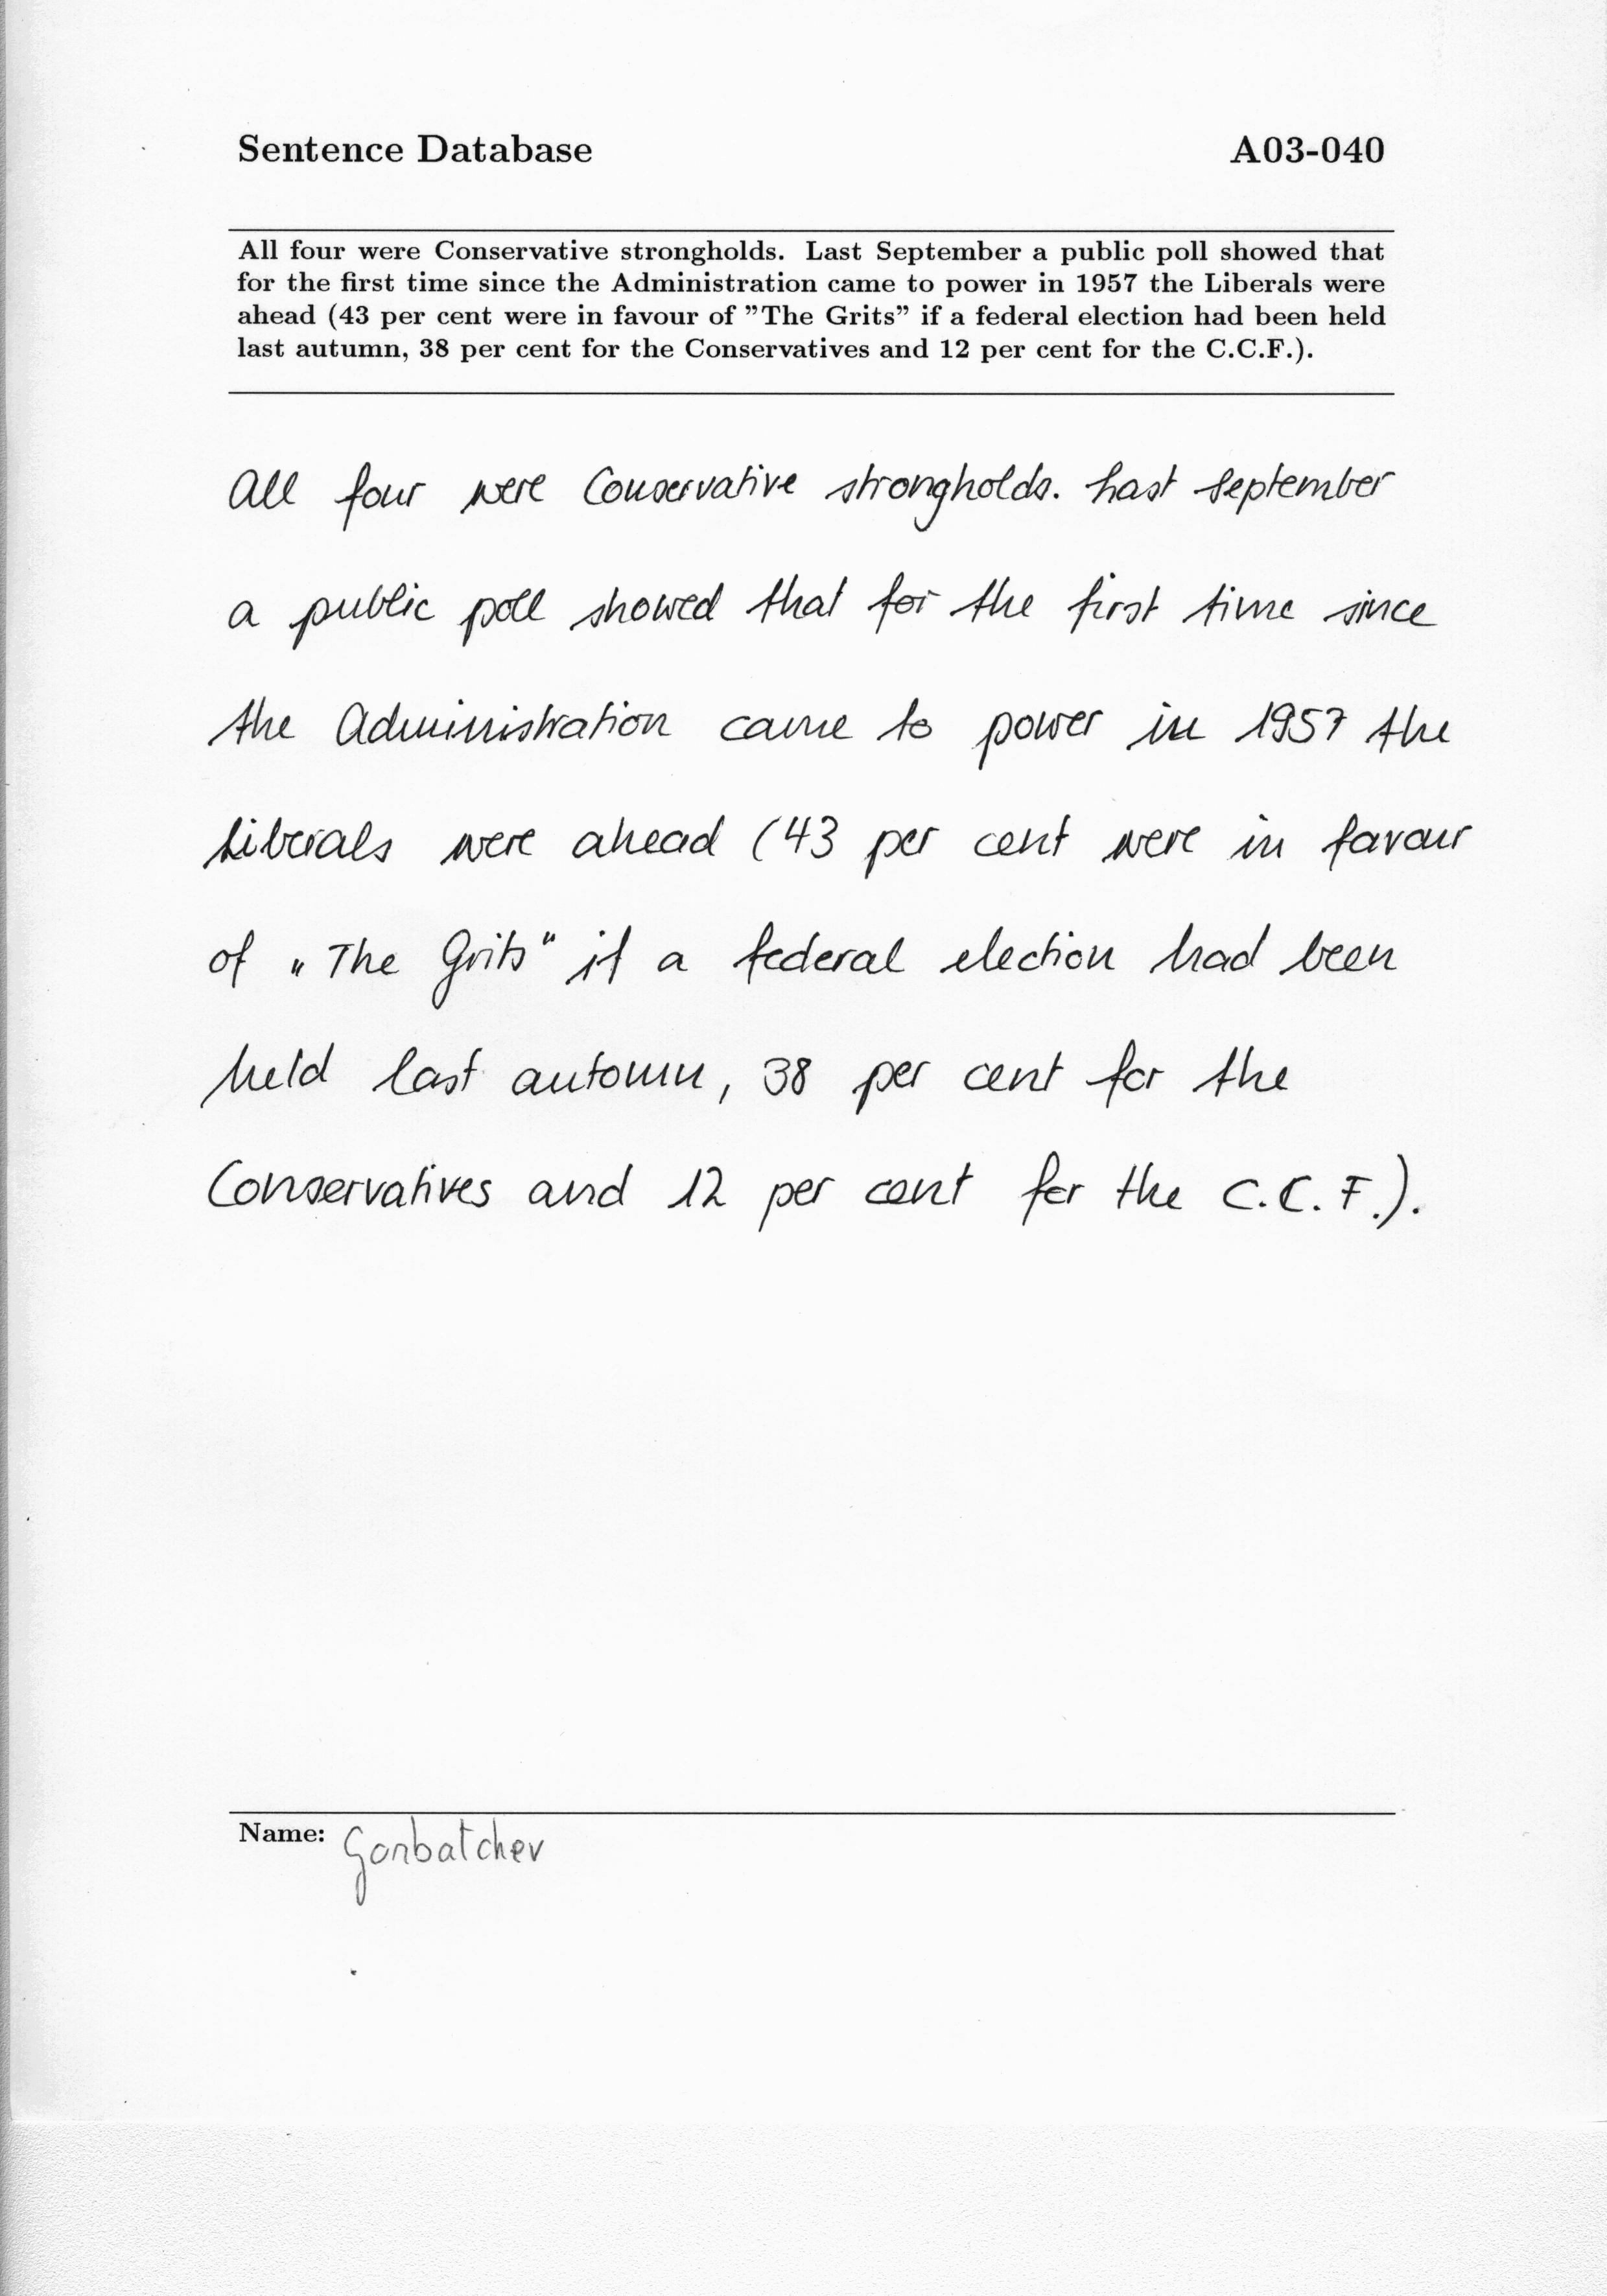 Sentence Database A03-040
All four were Conservative strongholds. Last September a public poll showed that
for the first time since the Administration came to power in 1957 the Liberals were
ahead (43 per cent were in favour of ”The Grits” if a federal election had been held
last autumn, 38 per cent for the Conservatives and 12 per cent for the C.C.F.).
All four were Conservative strongholds. Last September
a public poll showed that for the first time since
the Administration came to power in 1957 the
Liberals were ahead (43 per cent were in favour
of „The Grits“ if a federal election had been
held last automn, 38 per cent for the
Conservatives and 12 per cent for the C.C.F.).
Name: Gorbatchev